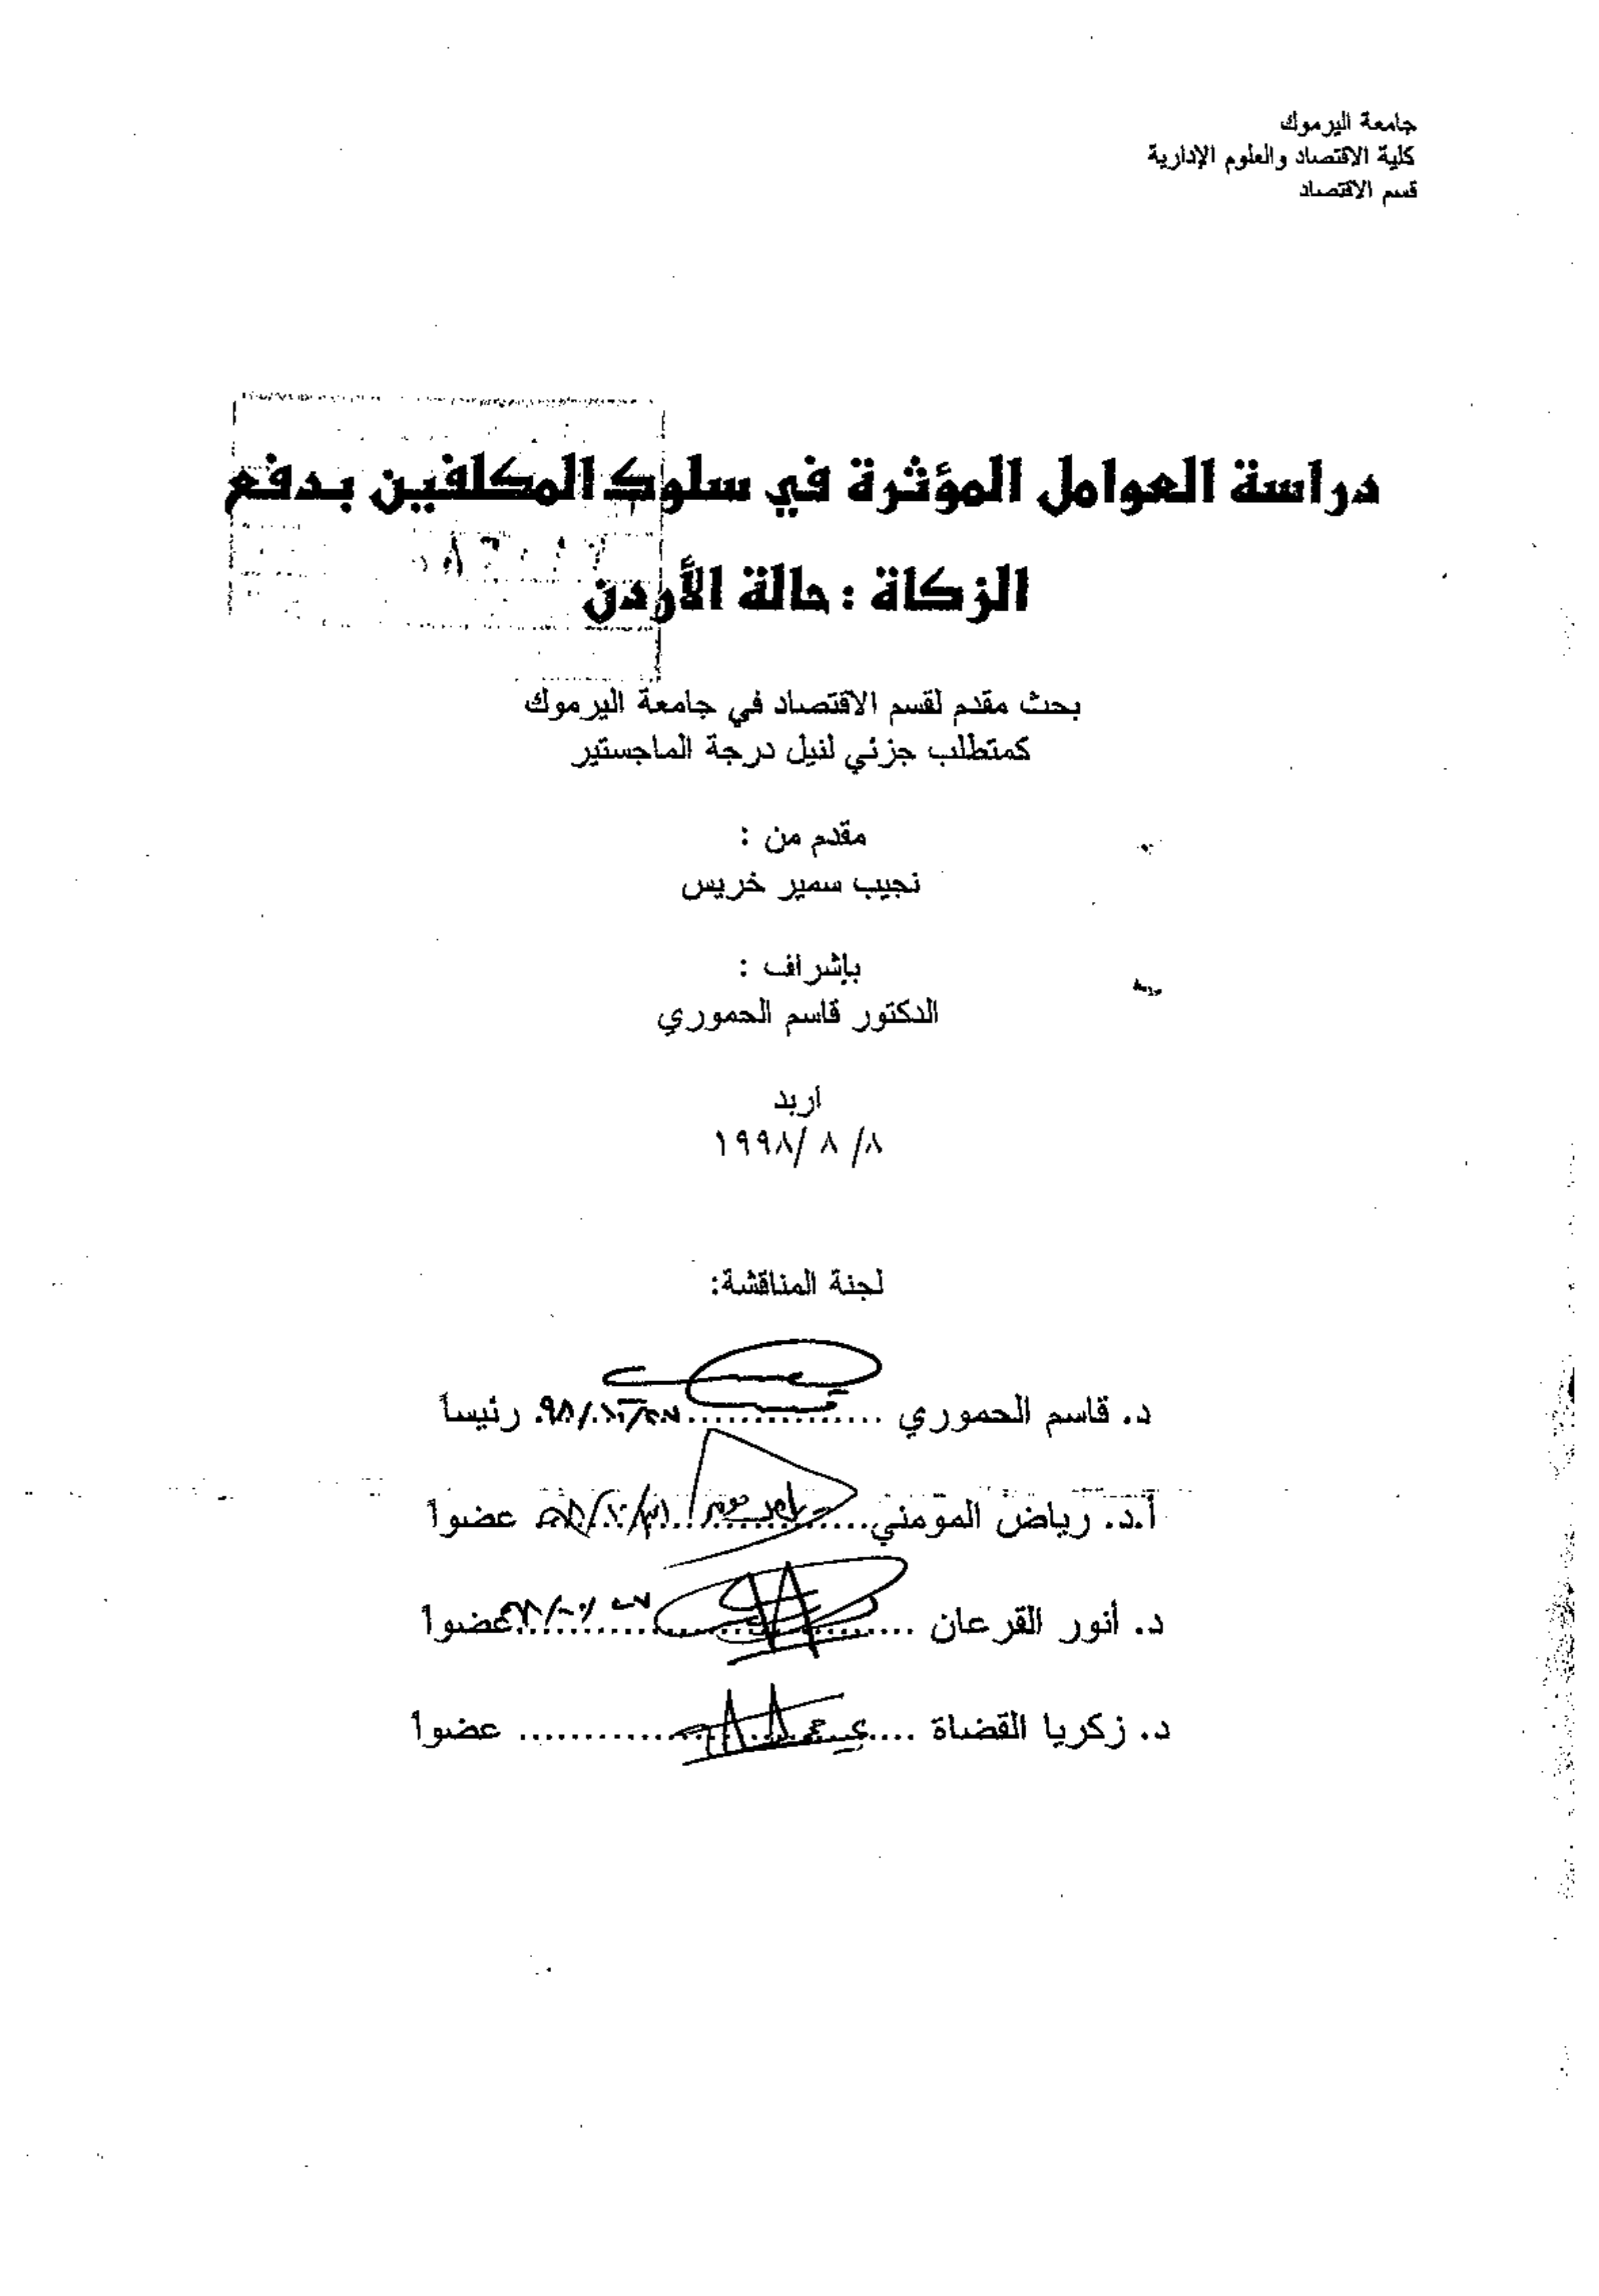 جامعة اليرموك
كلية الاقتصاد والعلوم الإدارية
قسم الاقتصاد
دراسة العوامل المؤثرة في سلوك المكلفين بدفع
الزكاة : حالة الأردن
بحث مقدم لقسم الاقتصاد في جامعة اليرموك
كمتطلب جزئي لنيل درجة الماجستير
مقدم من :
نجيب سمير خريس
بإشراف :
الدكتور قاسم الحموري
اربد
٨/ ٨ /١٩٩٨
لجنة المناقشة:
د. قاسم الحموري ............... رئيساً
أ.د. رياض المومني............... عضوا
د. أنور القرعان ............... عضوا
د. زكريا القضاة ............... عضوا